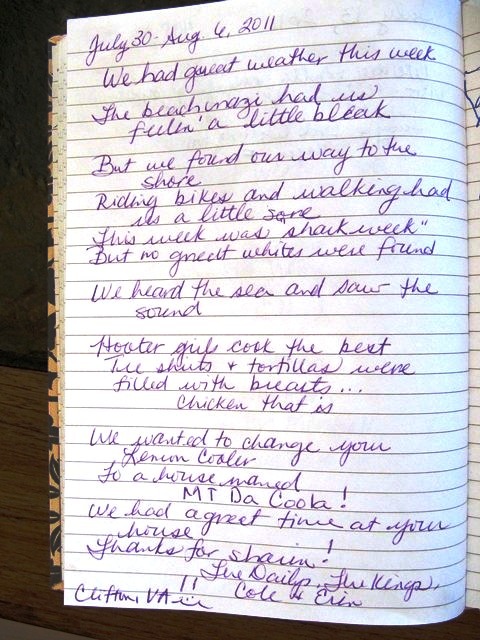 July 30 - Aug 6, 2011
We had great weather this week
The beachnazi had us
feelin' a little bleak
But we found our way to the
shore
Riding bikes and walking had
us a little sore
This week was shark week"
But no great whites were found
We heard the sea and saw the
sound
Hooter girls cook the best
Tie shirts + tortillas were
filled with breasts...
Chicken that is
We wanted to change your
Lemon Cooler
To a house named
MT Da Coola!
We had a great time at your
house!
Thanks for sharin'!
The Dailys, The Kings,
Clifton, VA !! Cole & Erin